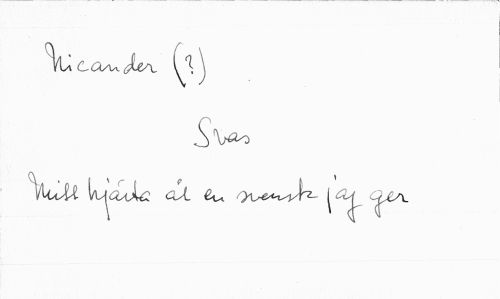 Nicander (?)
Svas
Mitt hjärta åt en svensk jag ger